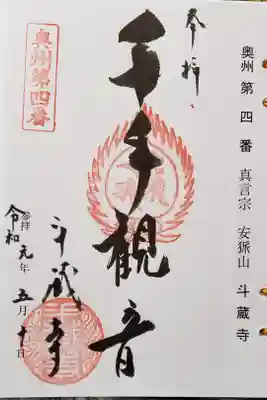 奥州 第 四 番 真言宗 安狐山 斗蔵寺
奉拝
奥州第四番
千手観音
斗蔵寺
参拝
令和元年五月十日